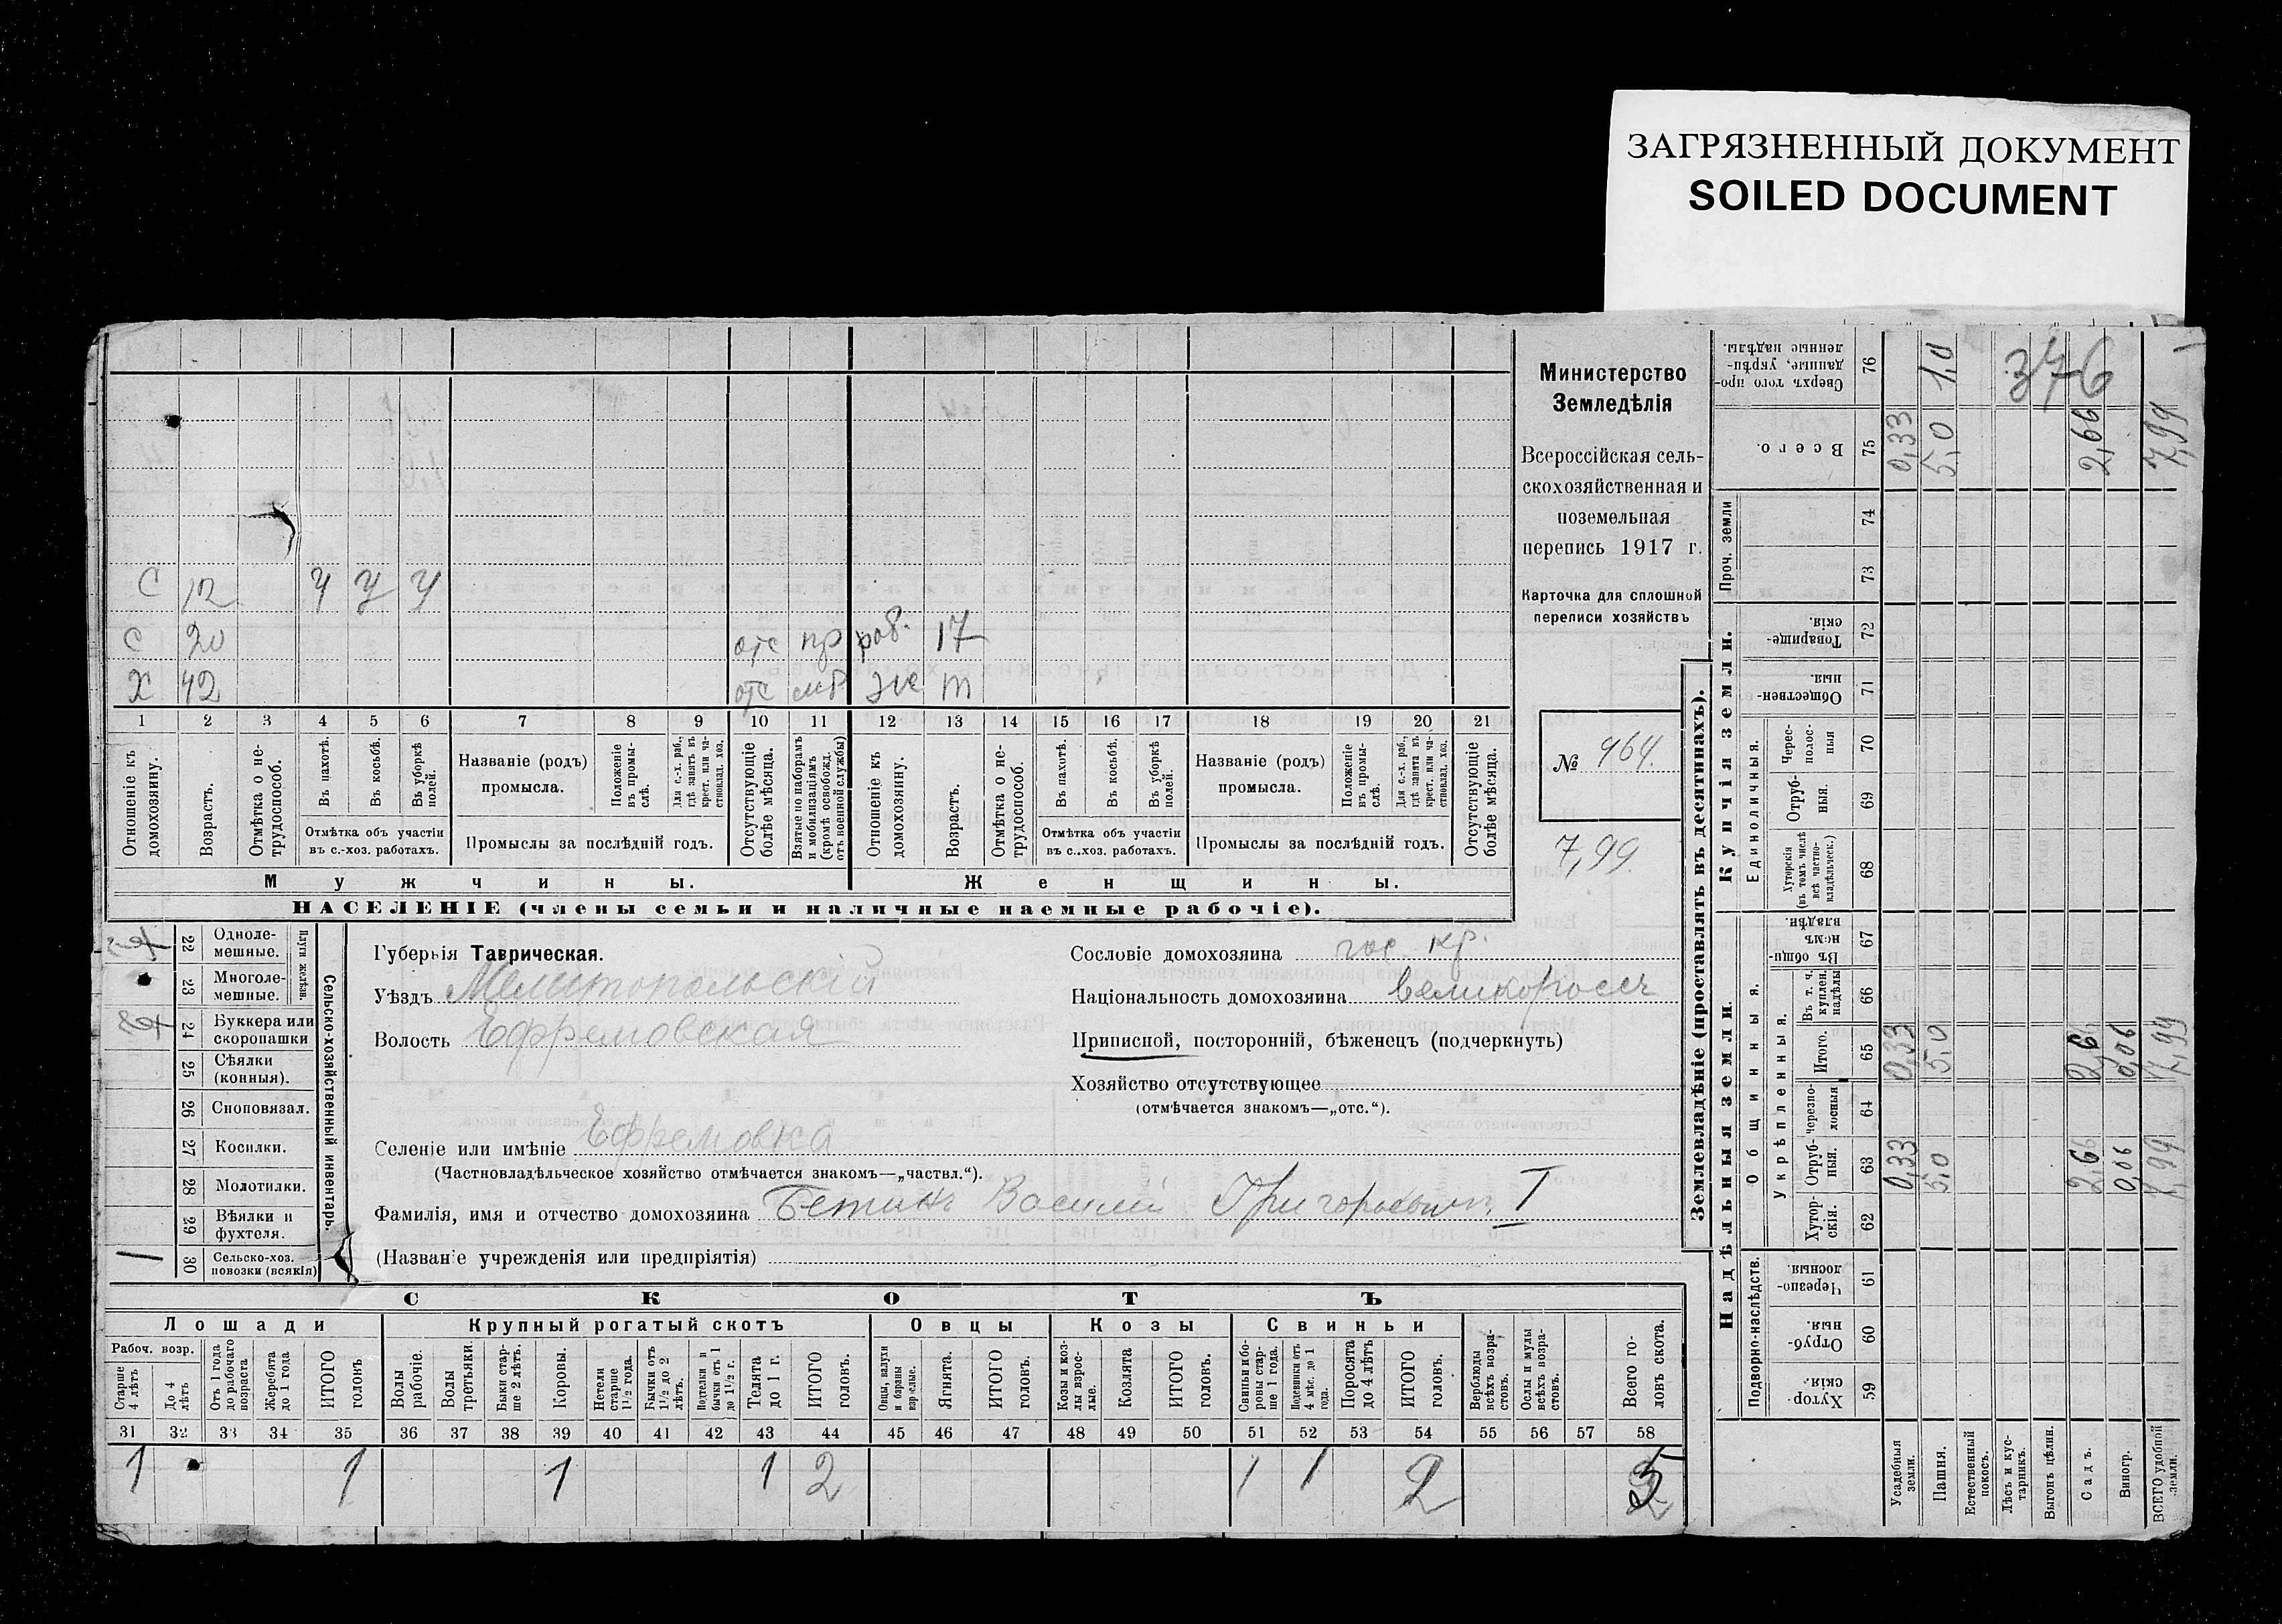 ЗАГРЯЗНЕННЫЙ ДОКУМЕНТ
SOILED DOCUMENT
С 12 У У У
С 20 отс пр раб. 17
Х 42 отс
1 2 3 4 5 6 7 8 9 10 11 12 13 14 15 16 17 18 19 20 21
Отношеніе къ домохозяину.
Возрастъ.
Отмѣтка о не-трудоспособ.
Въ пахотѣ.
Въ косьбѣ.
Въ уборкѣ полей.
Отмѣтка объ участіи въ с.-хоз. работахъ.
Названіе (родъ) промысла.
Положеніе въ промы-слѣ.
Для с.-х. раб., гдѣ занятъ въ крест. или ча-стновлад. хоз.
Промыслы за послѣдній годъ.
Отсутствующіе болѣе мѣсяца.
Взятые по наборамъ и мобилизаціямъ (кромѣ освобожд. отъ военной службы)
Отношеніе къ домохозяину.
Возрастъ.
Отмѣтка о не-трудоспособ.
Въ пахотѣ.
Въ косьбѣ.
Въ уборкѣ полей.
Отмѣтка объ участіи въ с..хоз. работахъ.
Названіе (родъ) промысла.
Положеніе въ промы-слѣ.
Для с.-х. раб., гдѣ занята въ крест. или ча-стновлад. хоз.
Промыслы за послѣдній годъ.
Отсутствующіе болѣе мѣсяца.
Мужчины. Женщины.
НАСЕЛЕНІЕ (члены семьи и наличные наемные рабочіе).
Министерство
Земледѣлія
Всероссійская сель-
скохозяйственная и
поземельная
перепись 1917 г.
Карточка для сплошной
переписи хозяйствъ
№ 964.
7,99
22 Одноле-мешные.
23 Многоле-мешные.
Плуги желѣзн.
24 Буккера или скоропашки
25 Сѣялки (конныя).
26 Сноповязал.
27 Косилки.
28 Молотилки.
29 Вѣялки и фухтеля.
30 Сельско-хоз. повозки (всякія)
Сельско-хозяйственный инвентарь.
Губернія Таврическая.
Уѣздъ Мелитопольскій
Волость Ефремовская
Селеніе или имѣніе Ефремовка
(Частновладѣльческое хозяйство отмѣчается знакомъ—„частвл.“).
Фамилія, имя и отчество домохозяина Бетинъ Василій Григорьевич. I
(Названіе учрежденія или предпріятія)
Сословіе домохозяина гос. кр.
Національность домохозяина великороссъ
Приписной, посторонній, бѣженецъ (подчеркнуть)
Хозяйство отсутствующее
(отмѣчается знакомъ—„отс.“).
СКОТЪ
Лошади Крупный рогатый скотъ Овцы Козы Свиньи
Рабоч. возр.
Старше 4 лѣтъ
До 4 лѣтъ
Отъ 1 года до рабочаго возраста
Жеребята до 1 года
ИТОГО головъ.
Волы рабочіе.
Волы третьяки.
Быки стар-ше 2 лѣтъ.
Коровы.
Нетели старше 1½ года.
Бычки отъ 1½ до 2 лѣтъ.
Подтелки и бычки отъ 1 до 1½ г.
Телята до 1 г.
ИТОГО головъ.
Овцы, валухи и бараны взрослые.
Ягнята.
ИТОГО головъ.
Козы и коз-лы взрос-лые.
Козлята
ИТОГО головъ.
Свиньи и бо-ровы стар-ше 1 года.
Подсвинки отъ 4 мѣс. до 1 года.
Поросята до 4 лѣтъ
ИТОГО головъ.
Верблюды всѣхъ возра-стовъ.
Ослы и мулы всѣхъ возра-стовъ.
Всего го-ловъ скота.
31 32 33 34 35 36 37 38 39 40 41 42 43 44 45 46 47 48 49 50 51 52 53 54 55 56 57 58
1 1 1 1 2 1 1 2 5
Землевладѣніе (проставлять въ десятинахъ).
Надѣльныя земли. Купчія земли. Проч. земли
Подворно-наслѣдств. Общинныя. Единоличныя.
Укрѣпленныя.
59 Хутор-скія.
60 Отруб-ныя.
61 Черезпо-лосныя.
62 Хутор-скія.
63 Отруб-ныя.
64 Черезпо-лосныя
65 Итого.
66 Въ т. ч. куплен. надѣлы
67 Въ общи-номъ владѣн.
68 Хуторскія (въ томъ числѣ всѣ частно-владѣльческ.)
69 Отруб-ныя.
70 Черес-полос-ныя
71 Обществен-ныя.
72 Товарище-скія.
73
74
75 Всего.
76 Сверхъ того про-данные, укрѣп-ленные надѣлы.
Усадебныя земли. 0,33 0,33 0,33
Пашня. 5,0 5,0 5,0 1,0
Естественный покосъ.
Лѣсъ и кус-тарникъ.
Выгонъ цѣлин.
Садъ. 2,66 2,6 2,66
Виногр. 0,06 0,06
ВСЕГО удобной земли. 7,99 7,99 7,99
376